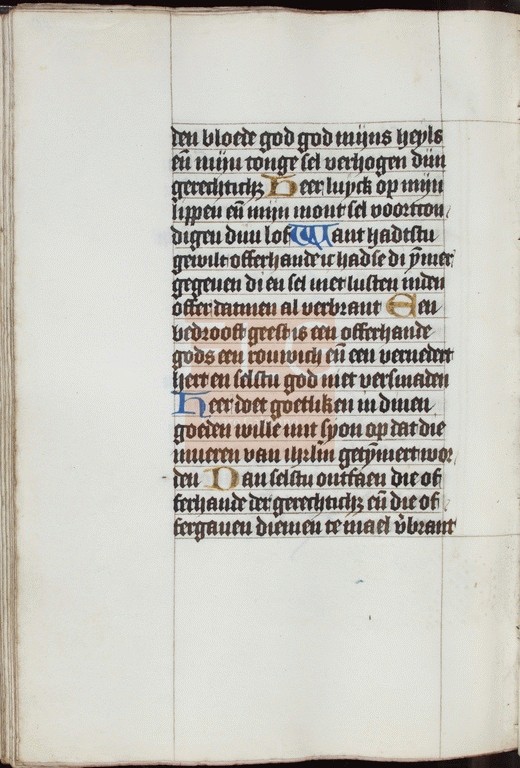 den bloede god god mijns heyls
eñ mijn tonge sel verhogen dijn
gerechtich₃ Heer luyck op mijn
lippen eñ mijn mont sel voortcon
digen dijn lof Want hadtstu
gewilt offerhande ic had se di ỹmer
gegeuen di en sel niet lusten inden
offer datmen al verbrant Een
bedrooft geest is een offerhande
gods een rouwich eñ een vernedert
hert en selstu god niet versmaden
Heer doet goetliken in dinen
goeden wille unt syon op dat die
mueren van ihrl̃m getỹmert wor
den Dan selstu ontfaen die of
ferhande der gerechtich₃ eñ die of
fergauen diemen te mael v̾brant